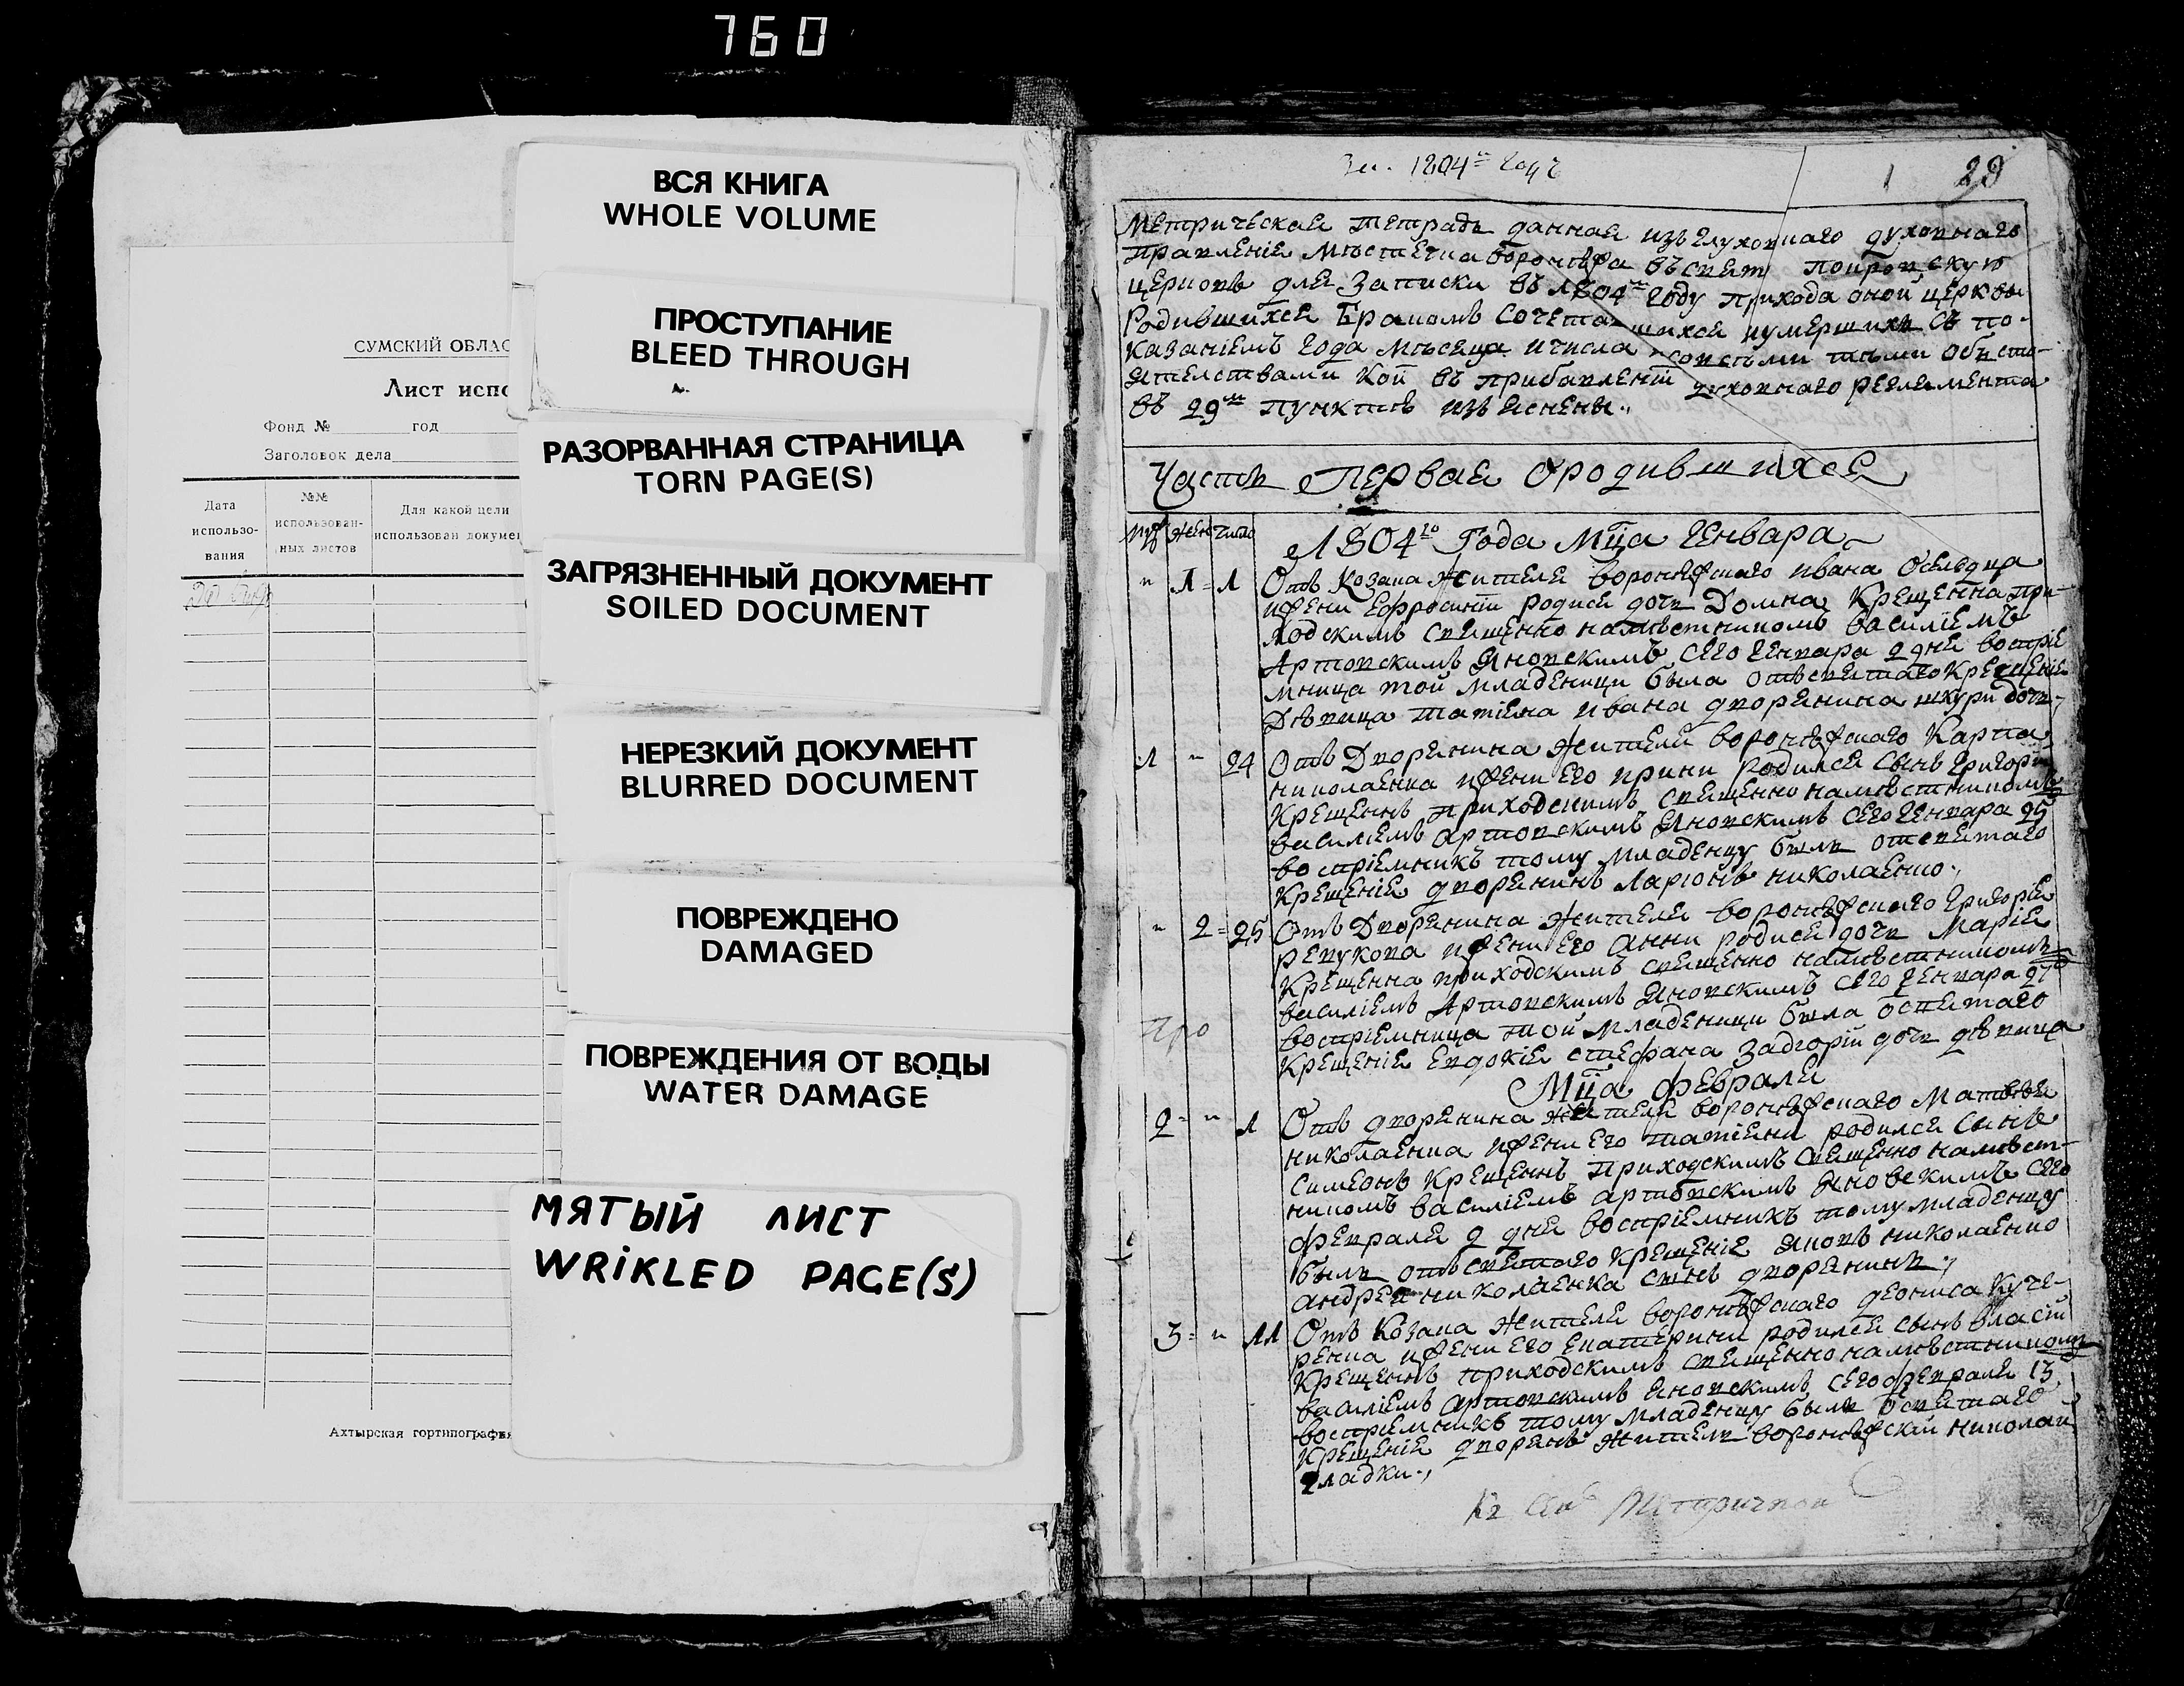 760
СУМСКИЙ ОБЛАС
Лист испо
Фонд № год
Заголовок дела
Дата использо-вания
№№ использован-ных листов
Для какой цели использован докумен
Ахтырская гортипография
ВСЯ КНИГА
WHOLE VOLUME
ПРОСТУПАНИЕ
BLEED THROUGH
РАЗОРВАННАЯ СТРАНИЦА
TORN PAGE(S)
ЗАГРЯЗНЕННЫЙ ДОКУМЕНТ
SOILED DOCUMENT
НЕРЕЗКИЙ ДОКУМЕНТ
BLURRED DOCUMENT
ПОВРЕЖДЕНО
DAMAGED
ПОВРЕЖДЕНИЯ ОТ ВОДЫ
WATER DAMAGE
МЯТЫЙ ЛИСТ
WRiKLED PAGE(S)
1804 году
1 29
Метрическая тетрадь данная изъ глуховнаго духовнаго
правленія мѣстечка воронѣжа въ свято покровскую
церковь для записки въ 1804м году прихода оной церкви
родившихся бракомъ сочетавшихся иумершихъ съ по-
казаніемъ года мѣсяца ичисла исовсѣми тѣми обсто-
ятелствами кои въ прибавленіи духовнаго регламента
въ 29м пунктѣ изъяснены.,
Часть Первая ородившихся
муж жен число
1804го Года Мца Генвара
" 1 1 Отъ Козака жителя воронѣжскаго ивана Оседца
ижени Ефросиніи родися дочь Домна Крещенна при-
ходскимъ священно намѣстникомъ василіемъ
Артовскимъ Яновскимъ сего генвара 2 дня воспріе
мница той младеници была отъ святаго крещенія
Дѣвица татіяна ивана дворянина шкури дочь
1 " 24 Отъ Дворянина жителя воронѣжскаго Карпа
николаенка ижени его ирини родился сынъ григори
Крещеннъ приходскимъ священно намѣстникомъ
василіемъ артовскимъ Яновскимъ сего генвара 25
воспріемникъ тому младенцу былъ отсвятаго
Крещенія дворянинъ Ларіонъ николаенко.,
" 2 25 Отъ Дворянина жителя воронѣжскаго григорія
ревукова ижени его анни родися дочь Марія
Крещенна приходскимъ священно намѣстникомъ
василіемъ Артовскимъ Яновскимъ сего генвара 27
воспріемница той младеници была освятаго
Крещенія евдокія стефана задгорій дочь дѣвица
Мца Февраля
2 " 1 Отъ дворянина жителя воронѣжскаго Матвѣя
николаенка ижени его татіяни родился сынъ
Симеонъ Крещеннъ приходскимъ священно намѣст-
никомъ василіемъ артовскимъ яновскимъ сего
февраля 2 дня воспріемникъ тому младенцу
былъ отъ святаго Крещенія яковъ николаенко
андрея николаенка сынъ дворянинъ.,
3 " 11 Отъ Козака жителя воронѣжскаго дениса Куче-
ренка ижени его екатерини родился сынъ власій
Крещеннъ приходскимъ священно намѣстникомъ
василіемъ артовскимъ яновскимъ сего февраля 13
воспріемникъ тому младенцу былъ освятаго
Крещенія дворянъ житель воронѣжскій николай
гладки.,